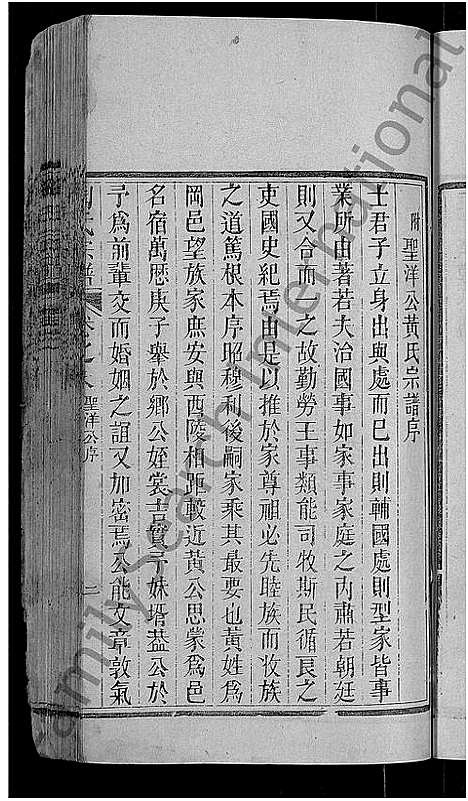 附
聖洋公黃氏宗譜序
士君子立身出與處而已出則輔國處則型家皆事
業所由著若夫治國事如家事家庭之內肅若朝廷
則又合而一之故勤勞王事類能司牧斯民循良之
吏國史紀焉由是以推於家尊祖必先睦族而收族
之道篤根本序昭穆利後嗣家乘其最要也黃姓為
岡邑望族家庶安與西陵相距較近黃公思蒙為邑
名宿萬歷庚子舉於鄉公姪裳吉質予妹壻葢公於
予為前輩交而婚姻之誼又加密焉公能文章敦氣
氏宗譜
卷之
聖洋公序
二
Family Search International